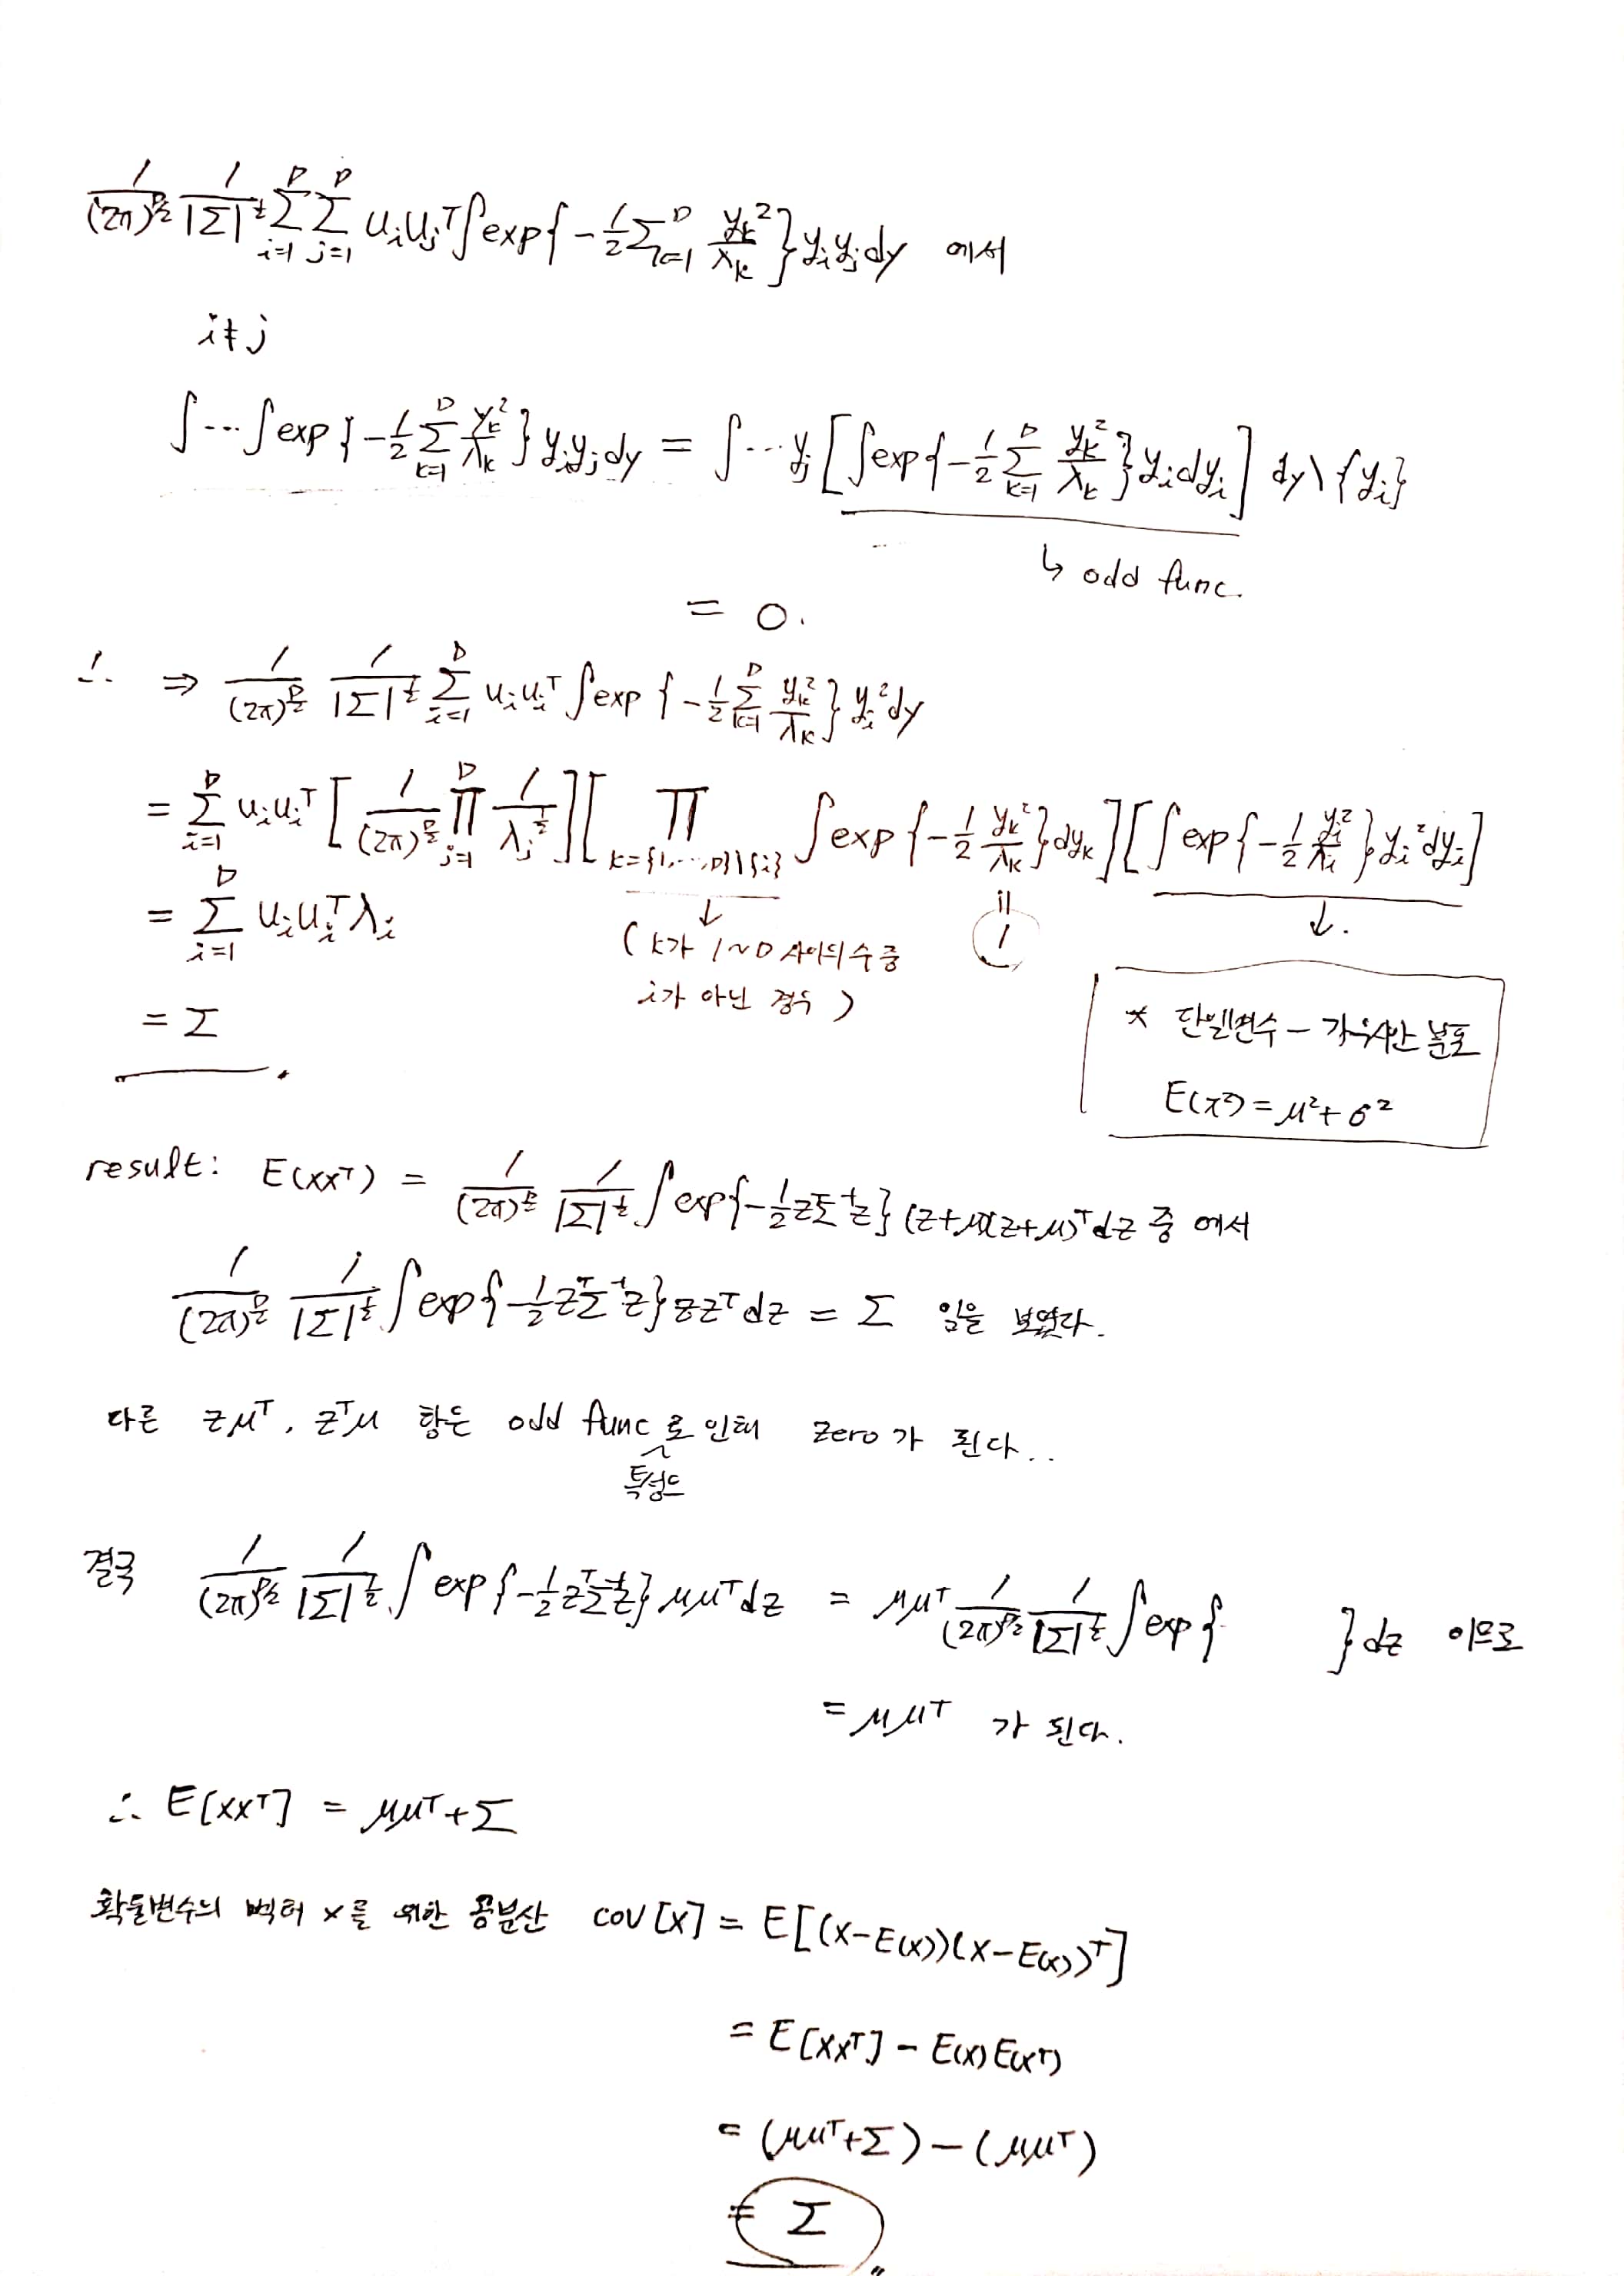 1/(2π)^{D/2} 1/|Σ|^{1/2} Σ_{i=1}^{D} Σ_{j=1}^{D} u_i u_j^T ∫exp{-1/2 Σ_{k=1}^{D} y_k²/λ_k} y_i y_j dy 에서
i≠j
∫···∫exp{-1/2 Σ_{k=1}^{D} y_k²/λ_k} y_i y_j dy = ∫··· y_j [∫exp{-1/2 Σ_{k=1}^{D} y_k²/λ_k} y_i dy_i] dy\{y_i}
↳ odd func.
= 0.
∴ ⇒ 1/(2π)^{D/2} 1/|Σ|^{1/2} Σ_{i=1}^{D} u_i u_i^T ∫exp{-1/2 Σ_{k=1}^{D} y_k²/λ_k} y_i² dy
= Σ_{i=1}^{D} u_i u_i^T [1/(2π)^{D/2} Π_{j=1}^{D} 1/λ_j^{1/2}][Π_{k={1,···,D}\{i}} ∫exp{-1/2 y_k²/λ_k}dy_k][∫exp{-1/2 y_i²/λ_i} y_i² dy_i]
= Σ_{i=1}^{D} u_i u_i^T λ_i
↓ (k가 1~D 사이의 수 중
i가 아닌 경우)
॥ 1
↓.
= Σ
* 단일변수 - 가우시안 분포
E(x²) = μ² + σ²
result: E(xx^T) = 1/(2π)^{D/2} 1/|Σ|^{1/2} ∫exp{-1/2 zΣ^{-1}z} (z+μ)(z+μ)^T dz 중 에서
1/(2π)^{D/2} 1/|Σ|^{1/2} ∫exp{-1/2 z^TΣ^{-1}z} zz^T dz = Σ 임을 보였다.
다른 zμ^T, z^Tμ 항은 odd func 로 인해 zero가 된다..
특성으
결국 1/(2π)^{D/2} 1/|Σ|^{1/2} ∫exp{-1/2 z^TΣ^{-1}z} μμ^T dz = μμ^T 1/(2π)^{D/2} 1/|Σ|^{1/2} ∫exp{ }dz 이므로
= μμ^T 가 된다.
∴ E[xx^T] = μμ^T+Σ
확률변수의 벡터 x를 위한 공분산 cov[x] = E[(x-E(x))(x-E(x))^T]
= E[xx^T] - E(x)E(x^T)
= (μμ^T+Σ)-(μμ^T)
= Σ